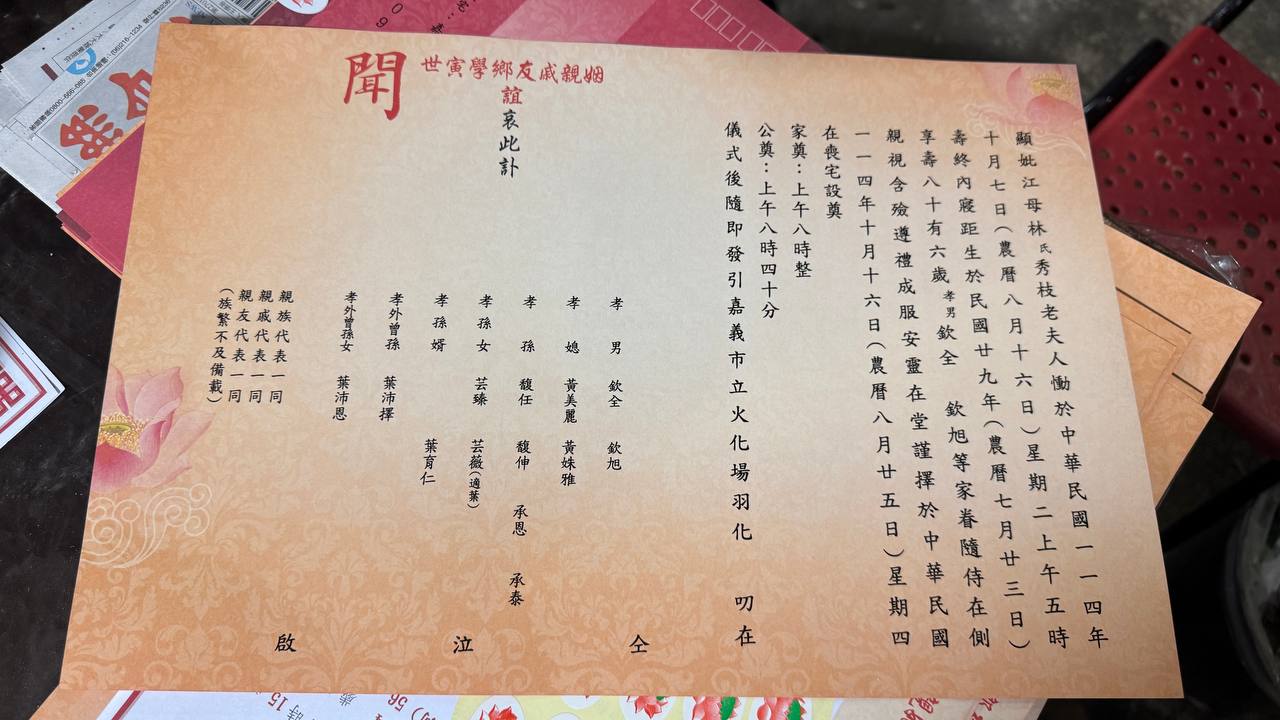 顯妣江母林氏秀枝老夫人慟於中華民國一一四年
十月七日(農曆八月十六日)星期二上午五時
壽終內寢距生於民國廿九年(農曆七月廿三日)
享壽八十有六歲孝男欽全 欽旭等家眷隨侍在側
親視含殮遵禮成服安靈在堂謹擇於中華民國
一一四年十月十六日(農曆八月廿五日)星期四
在喪宅設奠
家奠:上午八時整
公奠:上午八時四十分
儀式後隨即發引嘉義市立火化場羽化 叨在
姻親戚友鄉學寅世
誼哀此訃
聞
孝男 欽全 欽旭
孝媳 黃美麗 黃姝雅
孝孫 馥任 馥伸 承恩 承泰
孝孫女 芸臻 芸薇(適葉)
孝孫婿 葉育仁
孝外曾孫 葉沛擇
孝外曾孫女 葉沛恩
親族代表一同
親戚代表一同
親友代表一同
(族繁不及備載)
仝 泣 啟